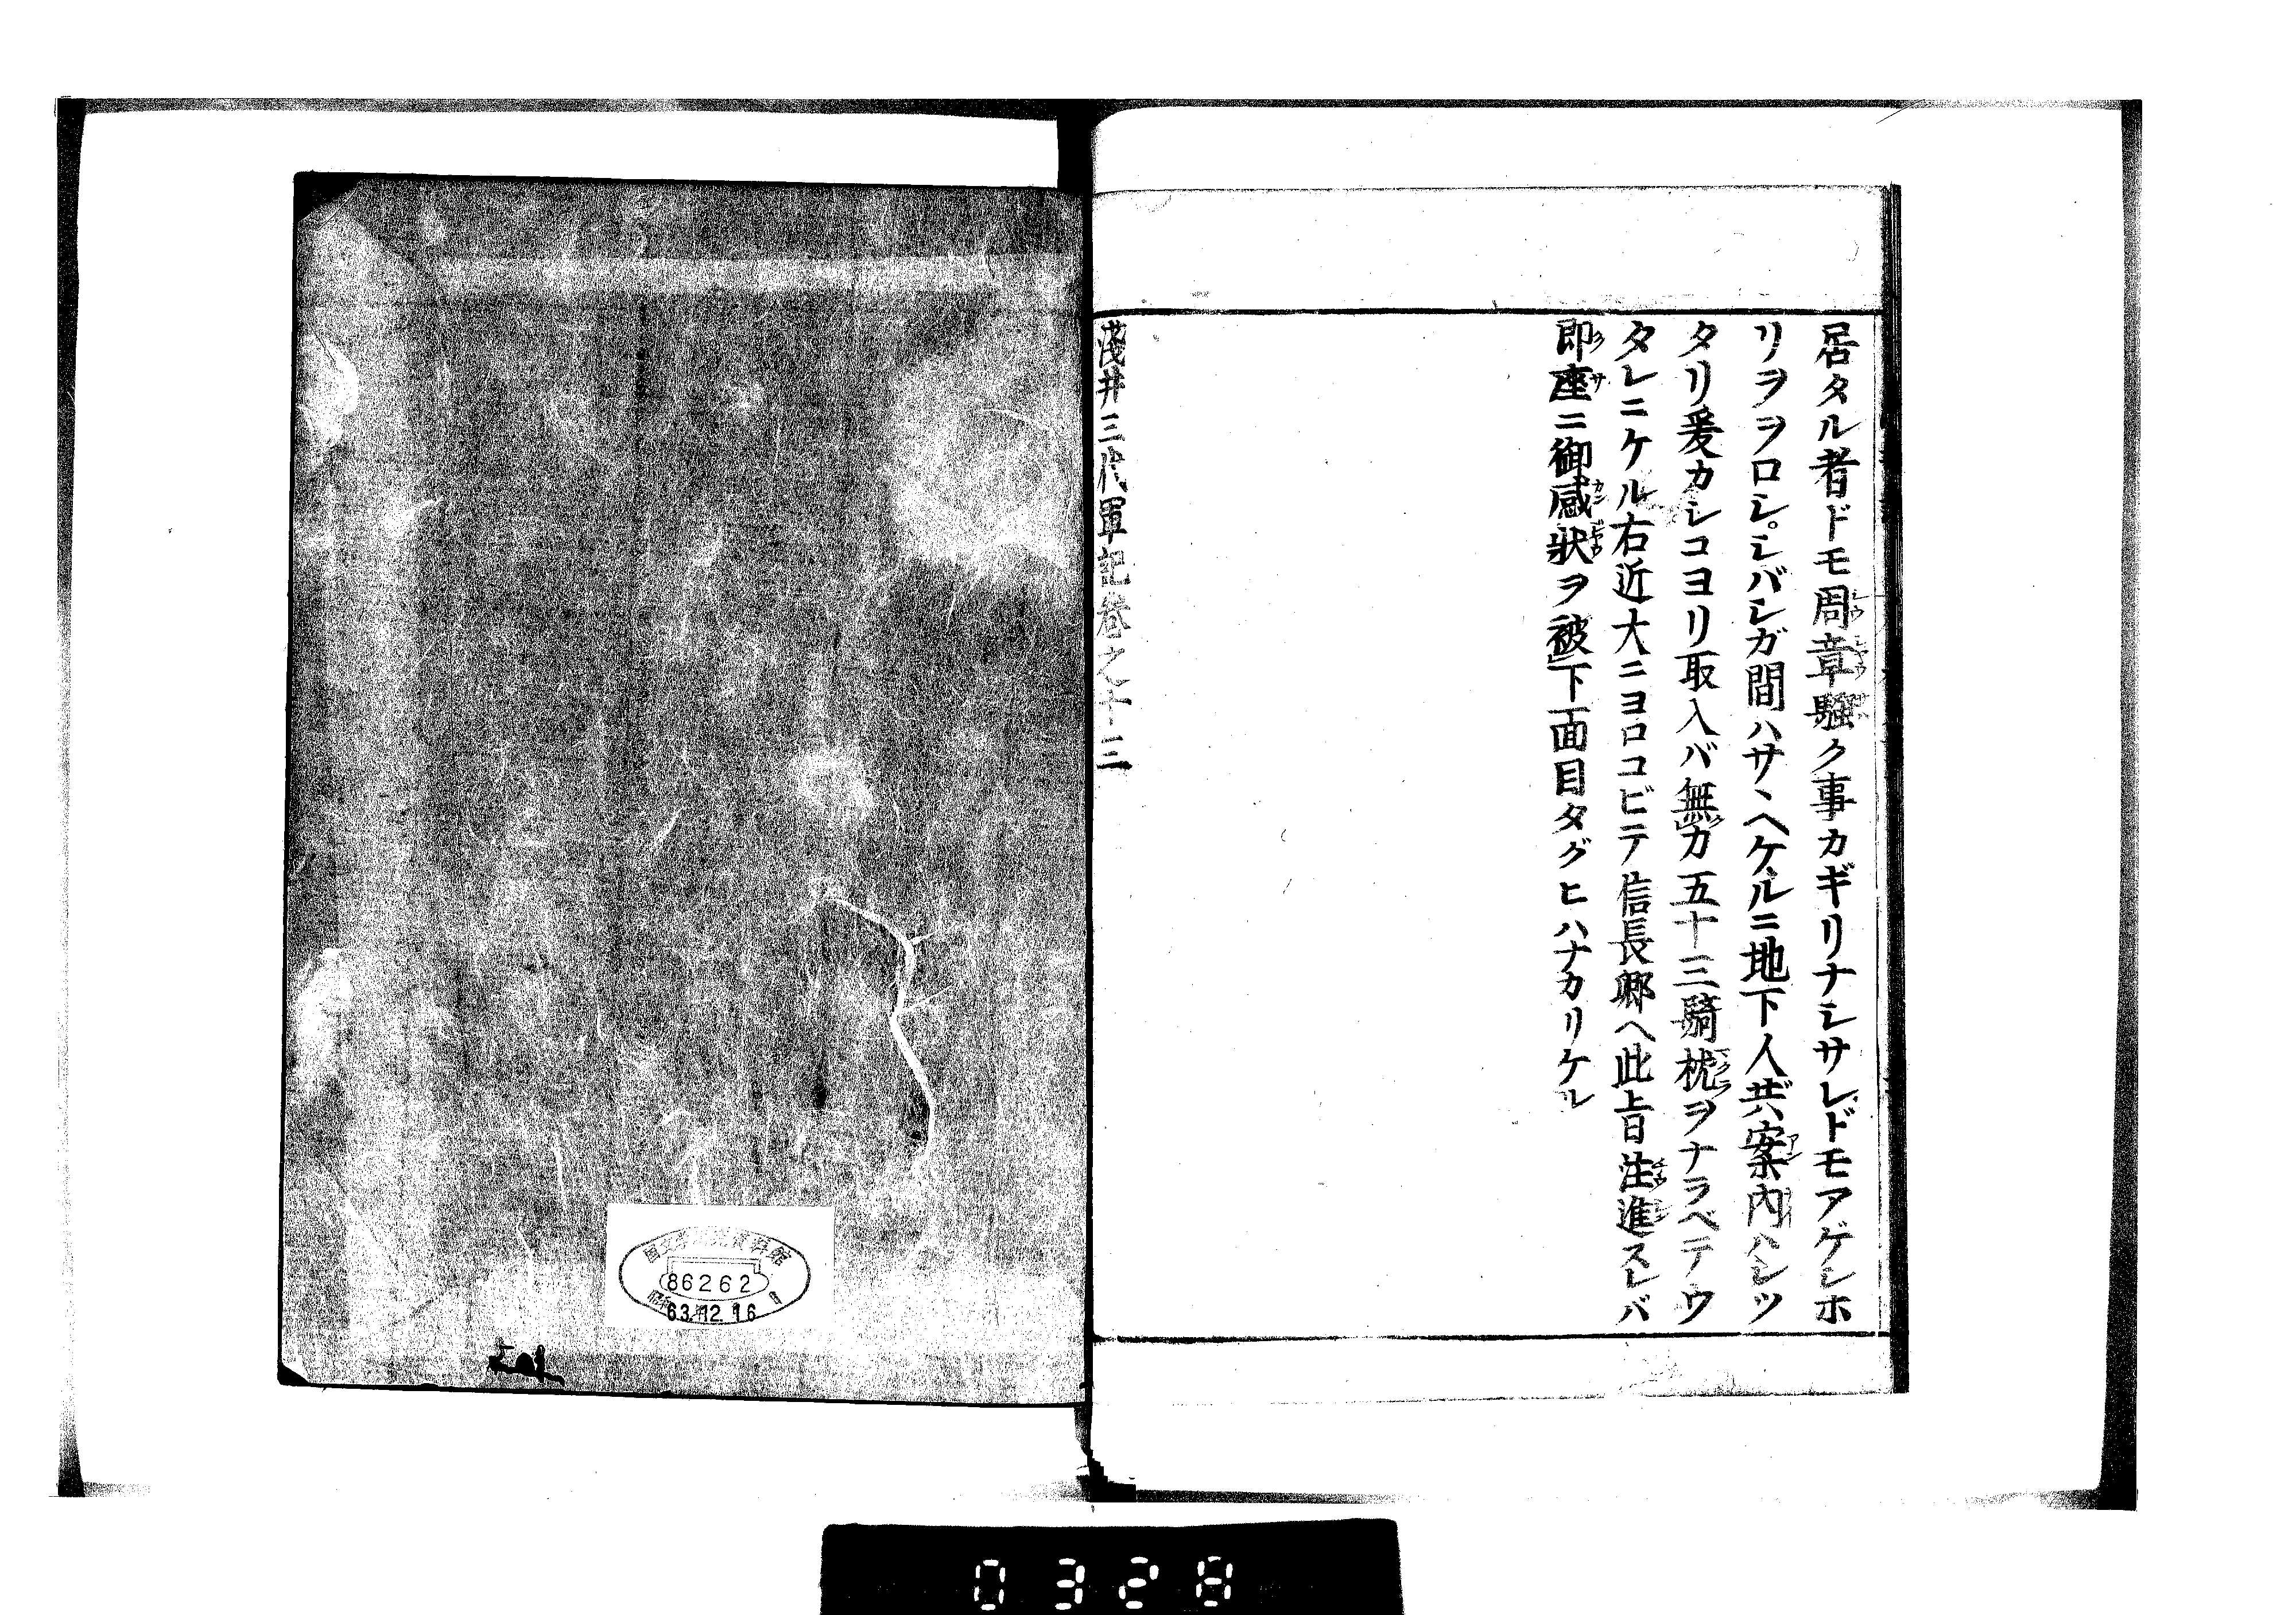 居タル者ドモ周章騒ク事カギリナシサレドモアゲシホ
リヲヲロシ。シバシガ間ハサヽヘケルニ地下人共案内ハシツ
タリ爰カシコヨリ取入バ無力五十三騎枕ヲナラベテウ
タレニケル右近大ニヨロコビテ信長郷ヘ此旨注進スレバ
即座ニ御感状ヲ被下面目タグヒハナカリケル
淺井三代軍記巻之十三
国文学研究資料館
86262
昭和63年12.16
0328